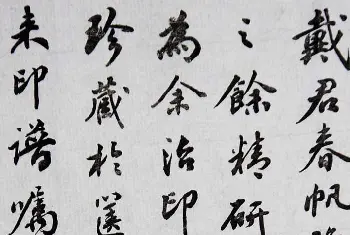 戴君春帆
之餘精研
為余治印
珍藏於篋
来印譜嘱